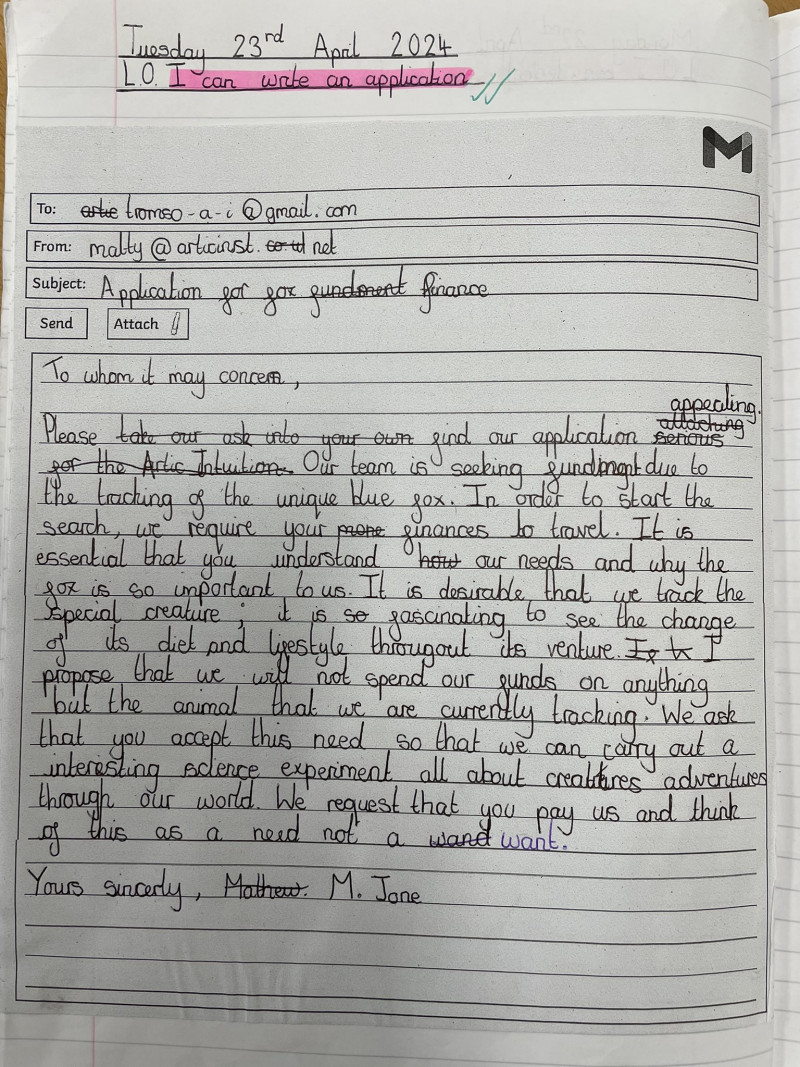 Tuesday 23rd April 2024
L.O. I can write an application
M
To: ~~artic~~ tromso-a-i@gmail.com
From: matty@articinst. ~~co u~~ net
Subject: Application for fox ~~fundment~~ finance
Send Attach
To whom it may concern,
appealing.
~~attaching~~
Please ~~take our ask into your own~~ find our application ~~serious~~
~~for the Artic Intuition.~~ Our team is seeking fundingment due to
the tracking of the unique blue fox. In order to start the
search, we require your ~~mone~~ finances to travel. It is
essential that you understand ~~how~~ our needs and why the
fox is so important to us. It is desirable that we track the
special creature; it is ~~so~~ fascinating to see the change
of its diet and lifestyle througout its venture. I
propose that we will not spend our funds on anything
but the animal that we are currently tracking. We ask
that you accept this need so that we can carry out a
interesting science experiment all about creatures adventures
through our world. We request that you pay us and think
of this as a need not a ~~wand~~ want.
Yours sincerly, ~~Mathew.~~ M. Jane